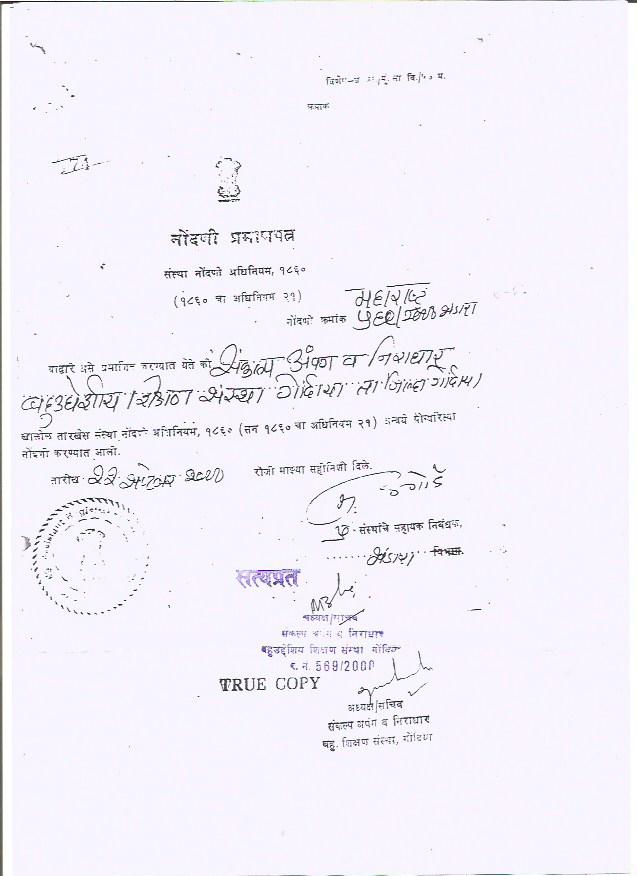 क्रमांक
नोंदणी प्रमाणपत्र
संस्था नोंदणी अधिनियम, १८६०
(१८६० चा अधिनियम २१)
महाराष्ट्र
नोंदणी क्रमांक ५६९/२००० भंडारा
याद्वारे असे प्रमाणित करण्यात येते की संकल्प अपंग व निराधार
बहुउद्देशीय शिक्षण संस्था गोंदिया ता जिल्हा गोंदिया
खालील तारखेस संस्था नोंदणी अधिनियम, १८६० (सन १८६० चा अधिनियम २१) अन्वये योग्यरित्या
नोंदणी करण्यात आली.
तारीख २००० रोजी माझ्या सहीनिशी दिले.
संस्थांचे सहायक निबंधक,
भंडारा विभाग
सत्यप्रत
अध्यक्ष/सचिव
संकल्प अपंग व निराधार
बहुउद्देशिय शिक्षण संस्था गोंदिया
र. नं. 569/2000
TRUE COPY
अध्यक्ष/सचिव
संकल्प अपंग व निराधार
बहु. शिक्षण संस्था, गोंदिया